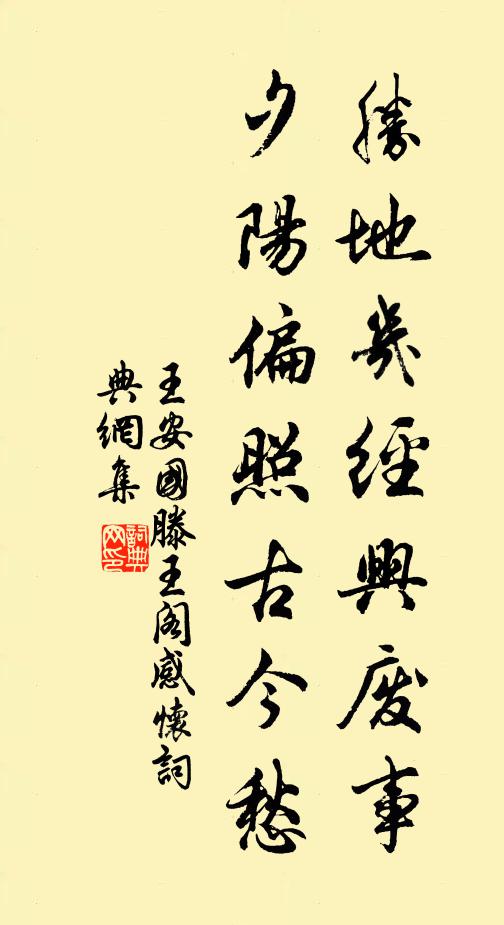 勝地幾經興廢事
夕陽偏照古今愁
王安國滕王閣感懷詞
典網集
詞典網印